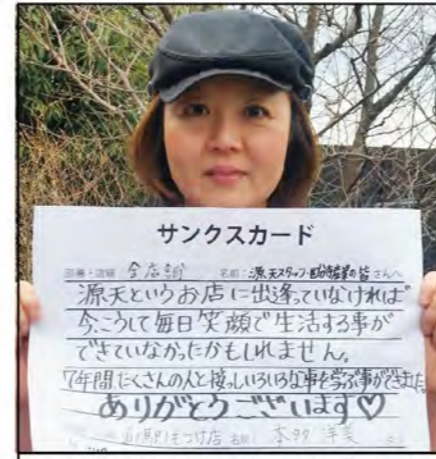 サンクスカード
部署・店舗 全店舗 名前:源天スタッフ・ の皆さんへ
源天というお店に出逢っていなければ
今、こうして毎日笑顔で生活する事が
できていなかったかもしれません。
7年間たくさんの人と接しいろいろな事を学ぶ事ができました。
ありがとうございます♡
店 名前 本多 洋美